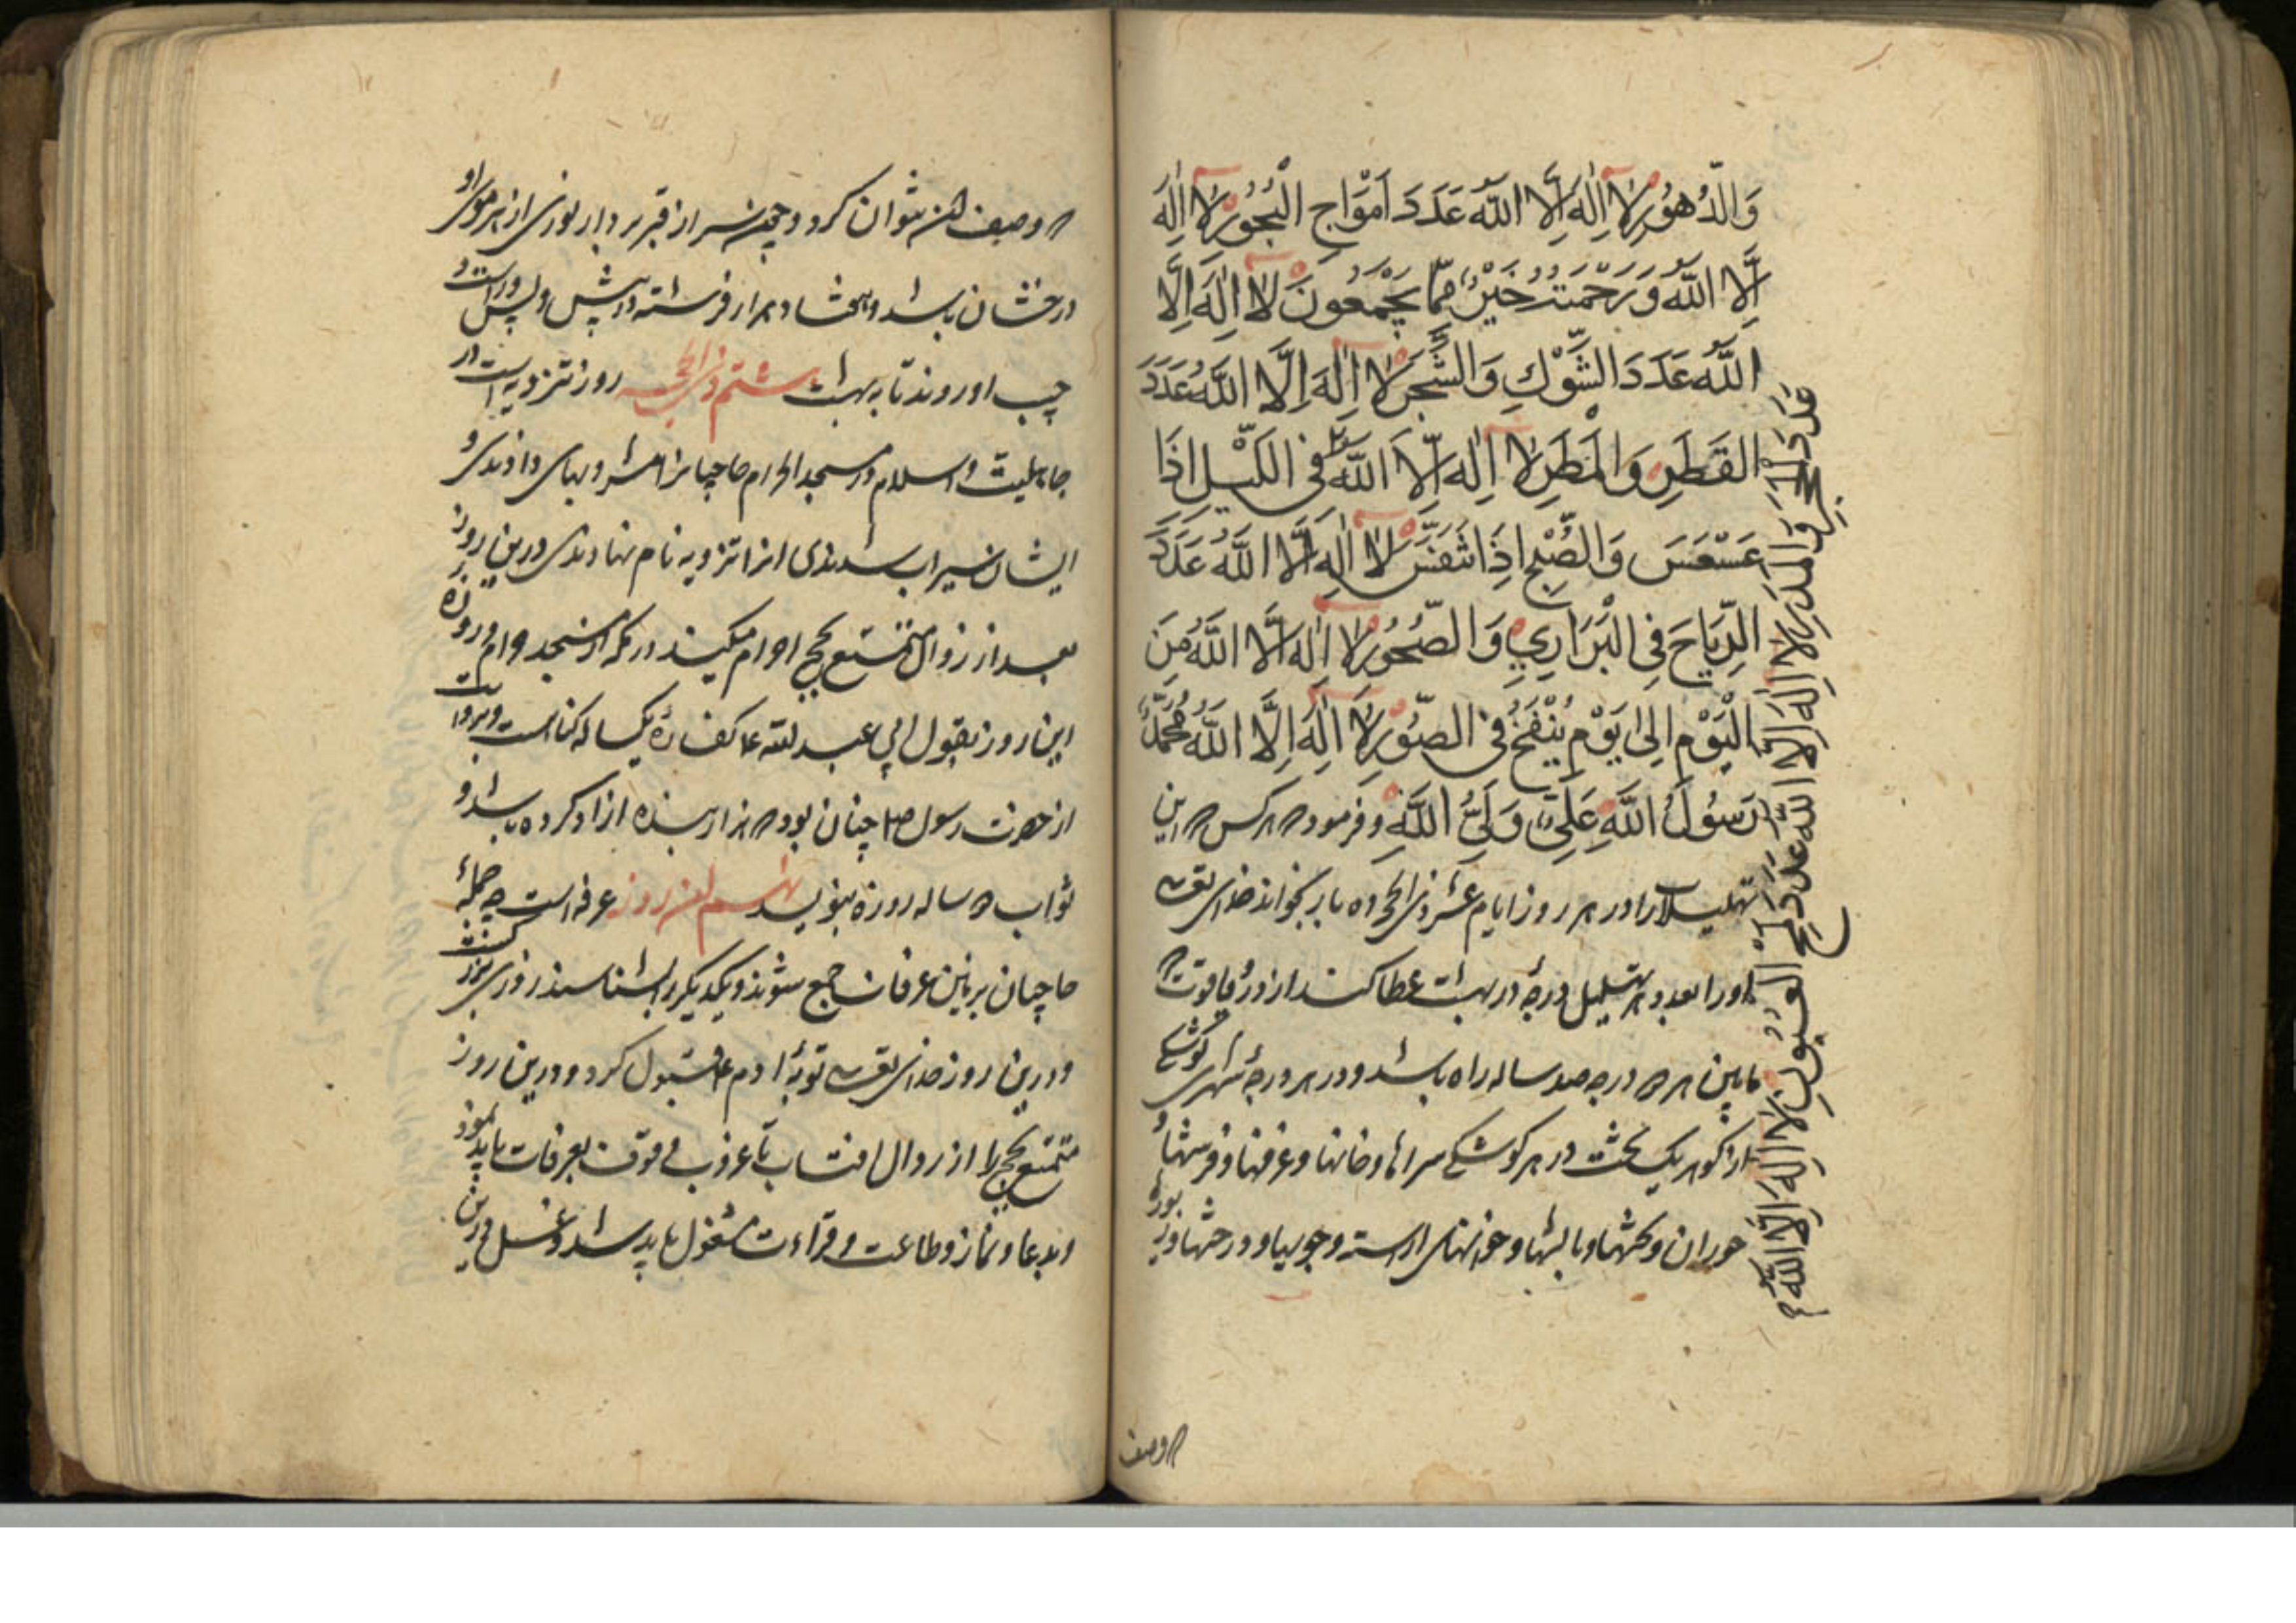 وَالدُّهُورِ لَا اِلٰهَ اِلَّا اللّٰهُ عَدَدَ اَمْوَاجِ الْبُحُورِ لَا اِلٰهَ
اِلَّا اللّٰهُ وَرَحْمَتُهُ خَيْرٌ مِمَّا يَجْمَعُونَ لَا اِلٰهَ اِلَّا
اللّٰهُ عَدَدَ الشَّوْكِ وَالشَّجَرِ لَا اِلٰهَ اِلَّا اللّٰهُ عَدَدَ
القَطَرِ وَالْمَطَرِ لَا اِلٰهَ اِلَّا اللّٰهُ فِي اللَّيْلِ اِذَا
عَسْعَسَ وَالصُّبْحِ اِذَا تَنَفَّسَ لَا اِلٰهَ اِلَّا اللّٰهُ عَدَدَ
الرِّيَاحِ فِي الْبَرَارِي وَالصُّخُورِ لَا اِلٰهَ اِلَّا اللّٰهُ مِنَ
الْيَوْمِ اِلٰى يَوْمِ يُنْفَخُ فِي الصُّوْرِ لَا اِلٰهَ اِلَّا اللّٰهُ مُحَمَّدٌ
رَسُولُ اللّٰهِ عَلِيٌّ وَلِيُّ اللّٰهِ و فرمود که هر کس که این
تهلیلات را در هر روز ایام عشر ذی الحجه ده بار بخواند خدای تعالی
او را بعدد هر تهلیل درجهٔ در بهشت عطا کند از در و یاقوت که
مابین هر دو درجه صد ساله راه باشد و در هر درجهٔ شهری کوشکی
از کوهر یک لخت در هر کوشکی سراها و خانها و غرفها و فرشها و
حوران و تختها و بالشها و خوانهای اراسته و جویها و درختها و
عَدَدَ الْحَجَرِ وَالْمَدَرِ لَا اِلٰهَ اِلَّا اللّٰهُ عَدَدَ لَمْحِ الْعُيُونِ لَا اِلٰهَ اِلَّا اللّٰهُ
که وصف
که وصف ان نتوان کرد و چون سر از قبر بردارد نوری از هر موی او
درخشان باشد و هفتاد هزار فرشته در پیش و پس و راست و
چپ او روند تا به بهشت هشتم ذی الحجه روز ترویه است در
جاهلیت و اسلام در مسجد الحرام حاجیانرا شربهای دادندی و
ایشان سیراب شدندی انرا ترویه نام نهادندی درین روز
بعد از زوال متمتع بحج احرام میکیرند در مکه از مسجد حرام و روزه
این روز بقول ابی عبد الله ع کفارهٔ یکساله کناهست و بروایت
از حضرت رسول ص چنان بود که هزار بنده ازاد کرده باشد و
ثواب ساله روزه بنویسد نهم این روز عرفه است چه جملهٔ
حاجیان برین عرفات جمع شوند و یکدیکر را بشناسند روزی بزرکست
و درین روز خدای تعالی توبهٔ ادم ع قبول کرد و درین روز
متمتع بحج را از زوال افتاب تا غروب وقوف بعرفات باید نمود
و بدعا و نماز و طاعت و قراءت مشغول باید شد و غسل درین